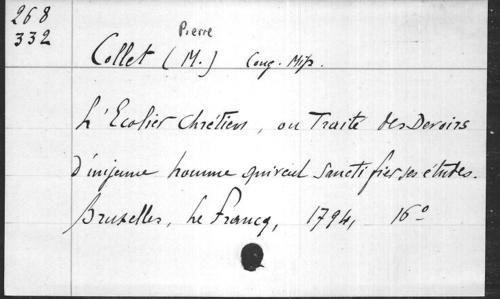 268
332
Pierre
Collet (M.) Cong. Miss.
L'Ecolier chrétien, ou Traité des Devoirs
d'un jeune homme qui veut sanctifier ses études.
Bruxelles, Le Francq, 1794, 16°